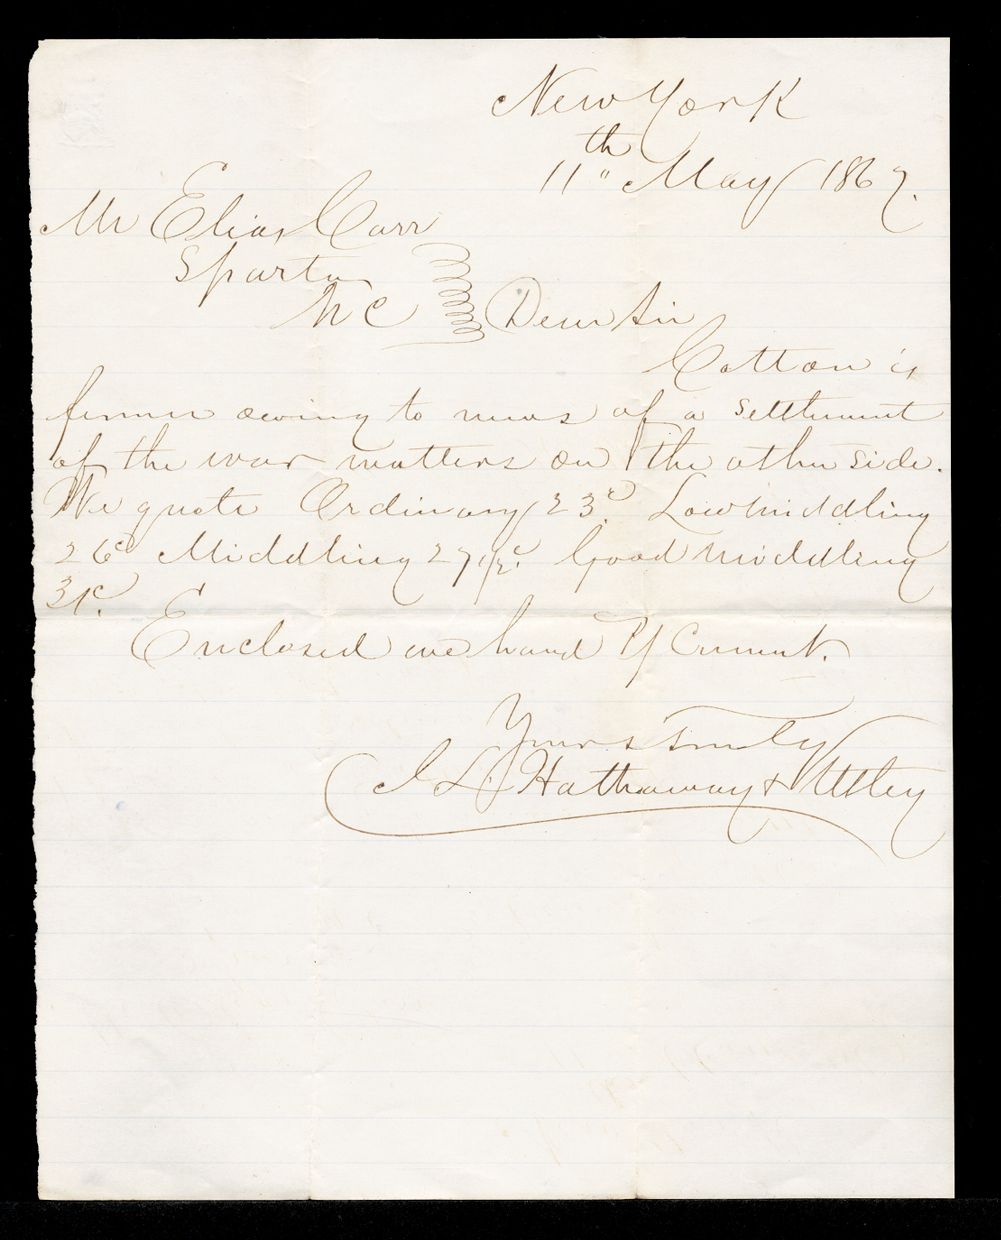 New York
11th May 1867.
Mr Elias Carr
Sparta
NC Dear Sir
Cotton is
firmer owing to news of a settlement
of the war matters on the other side.
We quote Ordinary 23c Low Middling
26c Middling 27 1/2c. Good Middling
31c.
Enclosed we hand
Yours Truly
J L Hathaway & Utley